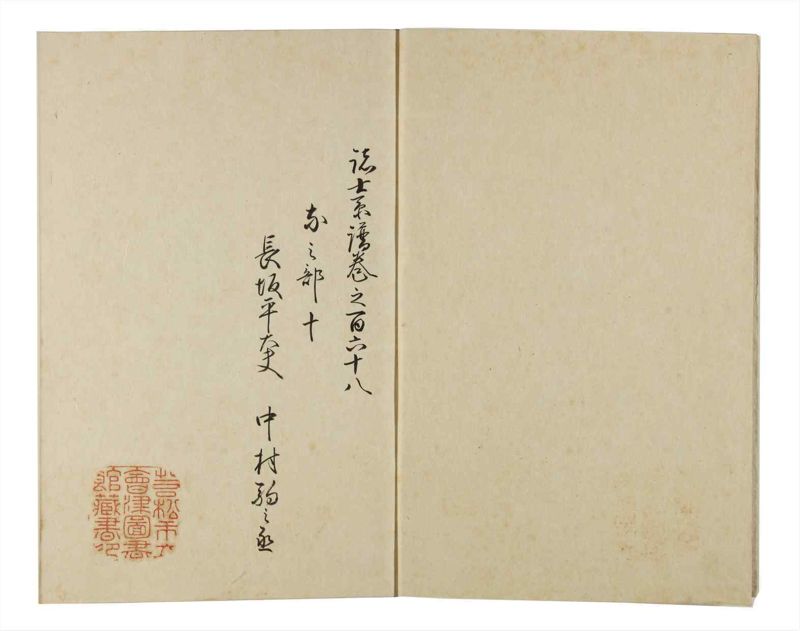 諸士系譜巻之百六十八
な之部十
長坂平太夫 中村駒之丞
若松市立
會津圖書
館藏書印